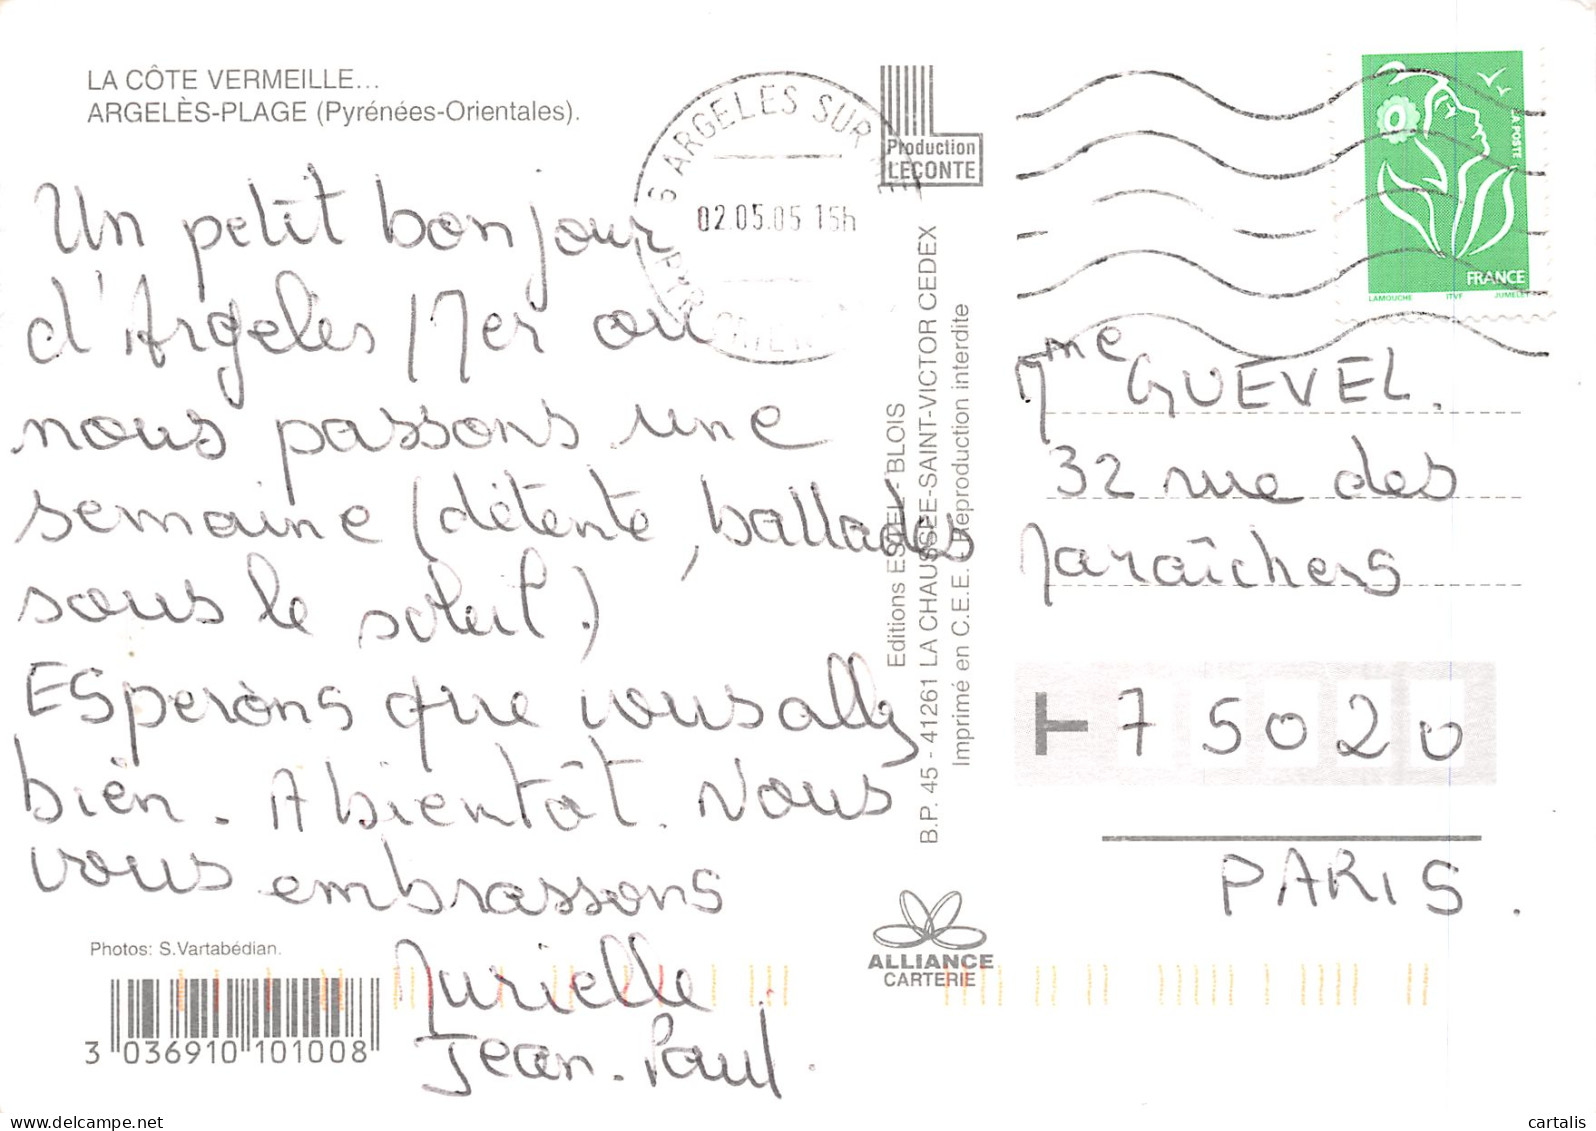 LA CÔTE VERMEILLE...
ARGELÈS-PLAGE (Pyrénées-Orientales).
Un petit bonjour
d'Argelès Mer où
nous passons une
semaine (détente, ballades
sous le soleil.)
ESperòns que vous allez
bien. A bientôt. Nous
vous embrassons
Murielle
Jean-Paul.
Photos: S.Vartabédian.
3 036910 101008
66 ARGELES SUR MER
02.05.05 15h
Production
LECONTE
Editions ESTEL - BLOIS
B.P. 45 - 41261 LA CHAUSSÉE-SAINT-VICTOR CEDEX
Imprimé en C.E.E. Reproduction interdite
ALLIANCE
CARTERIE
LA POSTE
FRANCE
LAMOUCHE ITVF JUMELET
Mme GUEVEL.
32 rue des
Maraîchers
75020
PARIS.
delcampe.net
cartalis